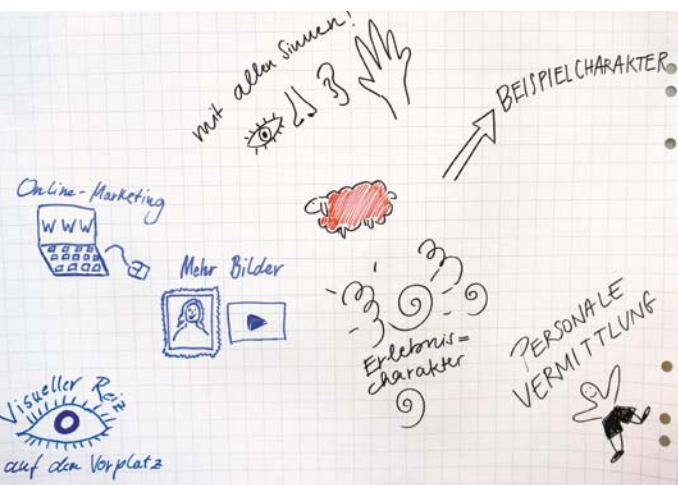 mit allen Sinnen!
BEISPIELCHARAKTER
Online-Marketing
WWW
Mehr Bilder
Erlebnis=
charakter
PERSONALE
VERMITTLUNG
Visueller Reiz
auf dem Vorplatz